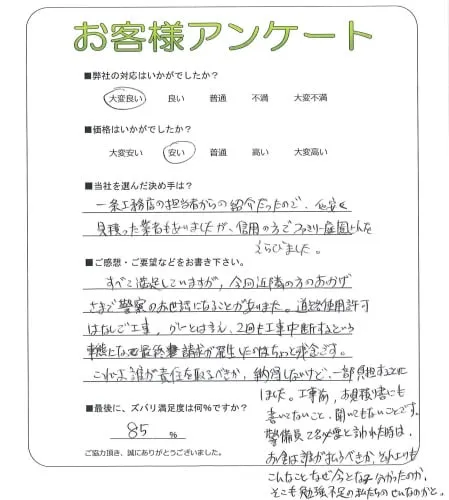 お客様アンケート
■弊社の対応はいかがでしたか?
大変良い 良い 普通 不満 大変不満
■価格はいかがでしたか?
大変安い 安い 普通 高い 大変高い
■当社を選んだ決め手は?
一条工務店の担当者からの紹介だったので、他安く
見積った業者もありましたが、信用の方でファミリー庭園さんを
えらびました。
■ご感想・ご要望などをお書き下さい。
すべて満足していますが、今回近隣の方のおかげ
さまで警察のお世話になることがありました。道路使用許可
はなしで工事、 とはいえ、2回も工事中断するという
事態になって最終 請求が発生したのはちょっと残念です。
これは誰が責任を取るべきか、納得しないけど、一部負担することに
しました。工事前、お見積り書にも
書いてないこと、聞いてもないことです。
警備員 必要と言われた時は、
お金は誰が払うべきか、それよりも
こんなことなぜ今となって分かったのか、
そこも勉強不足の私たちのせいなのかと。
■最後に、ズバリ満足度は何%ですか?
85 %
ご協力頂き、誠にありがとうございました。